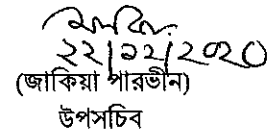 ২২/১২/২০২০
(জাকিয়া পারভীন)
উপসচিব